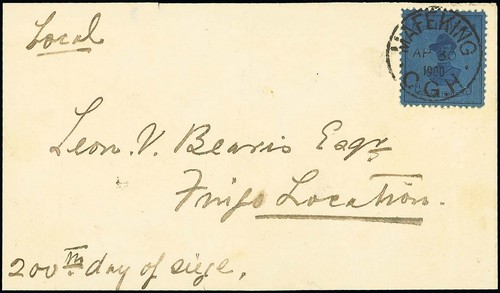 Local
MAFEKING
AP 30
1900
C.G.H.
Leon. V. Bearis Esqr
Fingo Location.
200th day of siege.